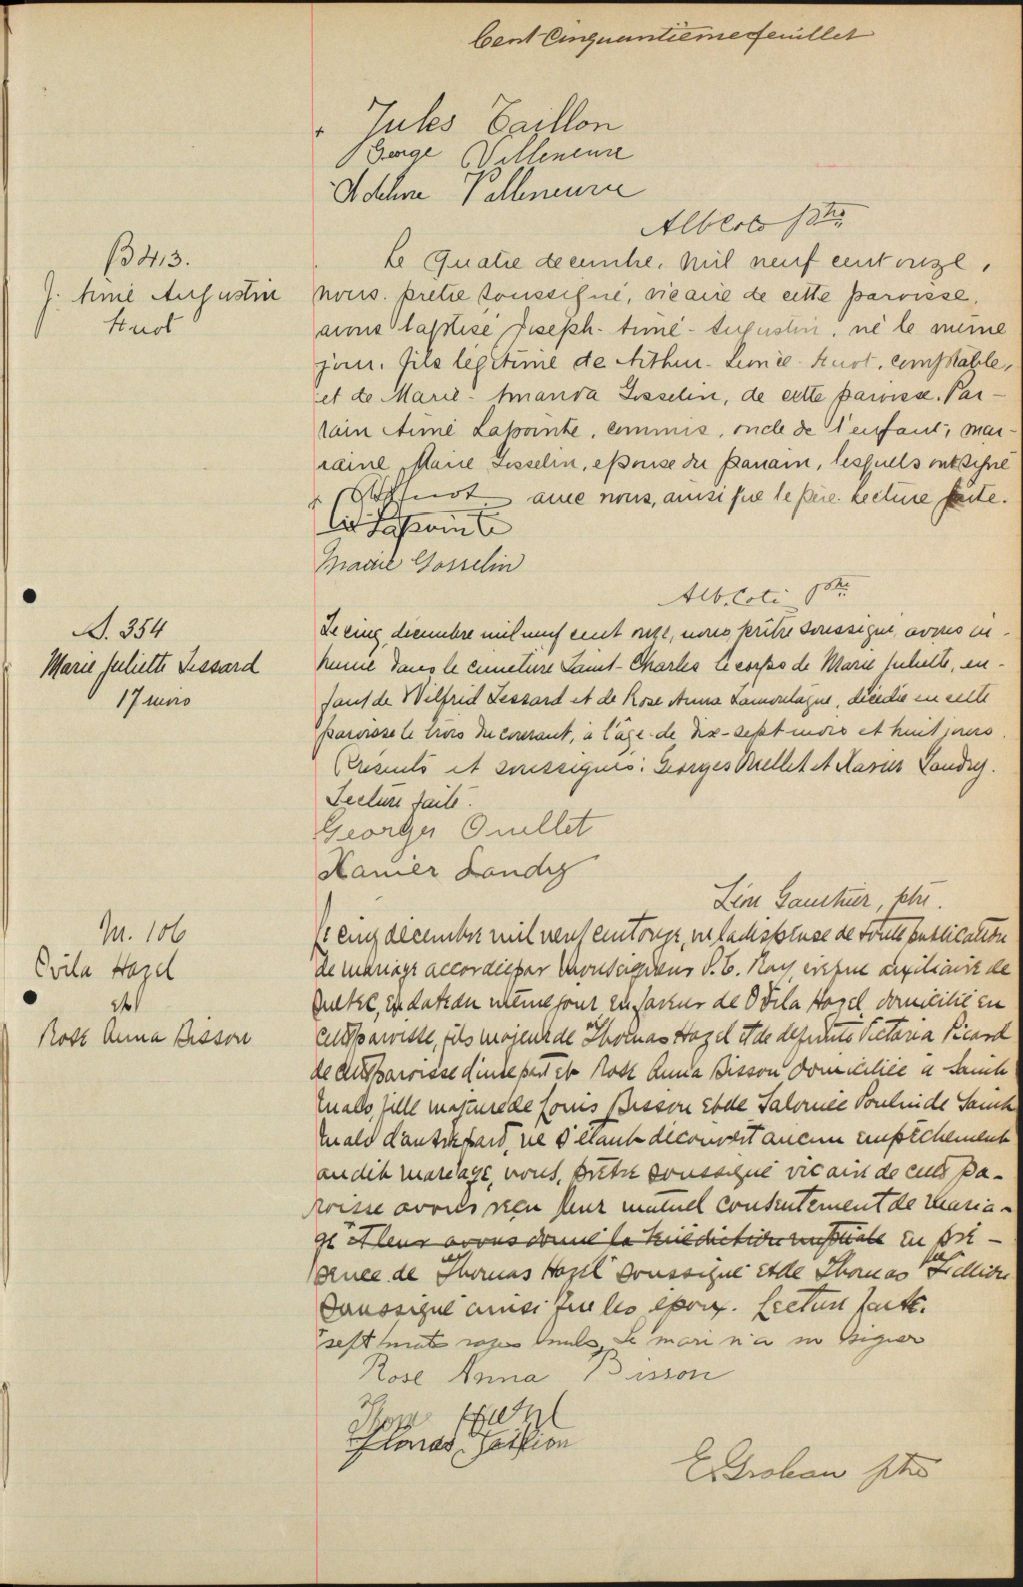 Cent Cinquantième feuillet
Jules Taillon
George Villeneuve
Adeline Villeneuve
Alb. Coté ptre
B 413.
J. Aimé Augustin
Huot
Le quatre decembre, mil neuf cent onze,
nous prêtre soussigné, vicaire de cette paroisse,
avons baptisé Joseph-Aimé-Augustin, né le même
jour, fils légitime de Arthur-Léonce Huot, comptable,
et de Marie-Amanda Gosselin, de cette paroisse. Par-
rain Aimé Lapointe, commis, oncle de l'enfant, mar-
raine Marie Gosselin, épouse du parrain, lesquels ont signé
Huot avec nous, ainsi que le père. Lecture faite.
Lapointe
Marie Gosselin
Alb. Coté ptre
S. 354
Marie Juliette Lessard
17 mois
Le cinq décembre mil neuf cent onze, nous prêtre soussigné avons in-
humé dans le cimetière Saint-Charles le corps de Marie Juliette, en-
fant de Wilfrid Lessard et de Rose Anna Lamontagne, décédée en cette
paroisse le trois du courant, à l'âge de dix-sept mois et huit jours.
Présents et soussignés: Georges Ouellet et Xavier Landry.
Lecture faite.
Georges Ouellet
Xavier Landry
Léon Gauthier, ptre.
M. 106
Ovila Hazel
et
Rose Anna Bisson
Le cinq décembre mil neuf cent onze, vu la dispense de toute publication
de mariage accordée par Monseigneur P. E. Roy, évêque auxiliaire de
Québec, en date du même jour, en faveur de Ovila Hazel, domicilié en
cette paroisse, fils majeur de Thomas Hazel et de défunte Victoria Picard
de cette paroisse d'une part et Rose Anna Bisson domiciliée à Saint
Malo, fille majeure de Louis Bisson et de Salomée Poulin de Saint
Malo d'autre part, ne s'étant découvert aucun empêchement
au dit mariage, nous, prêtre soussigné vicaire de cette pa-
roisse avons reçu leur mutuel consentement de maria-
ge et leur avons donné la bénédiction nuptiale en pré-
sence de Thomas Hazel soussigné et de Thomas
soussigné ainsi que les époux. Lecture faite.
sept mots rayés nuls, Le mari n'a su signer
Rose Anna Bisson
Thomas Hazel
Thomas
E. Grobeau ptre